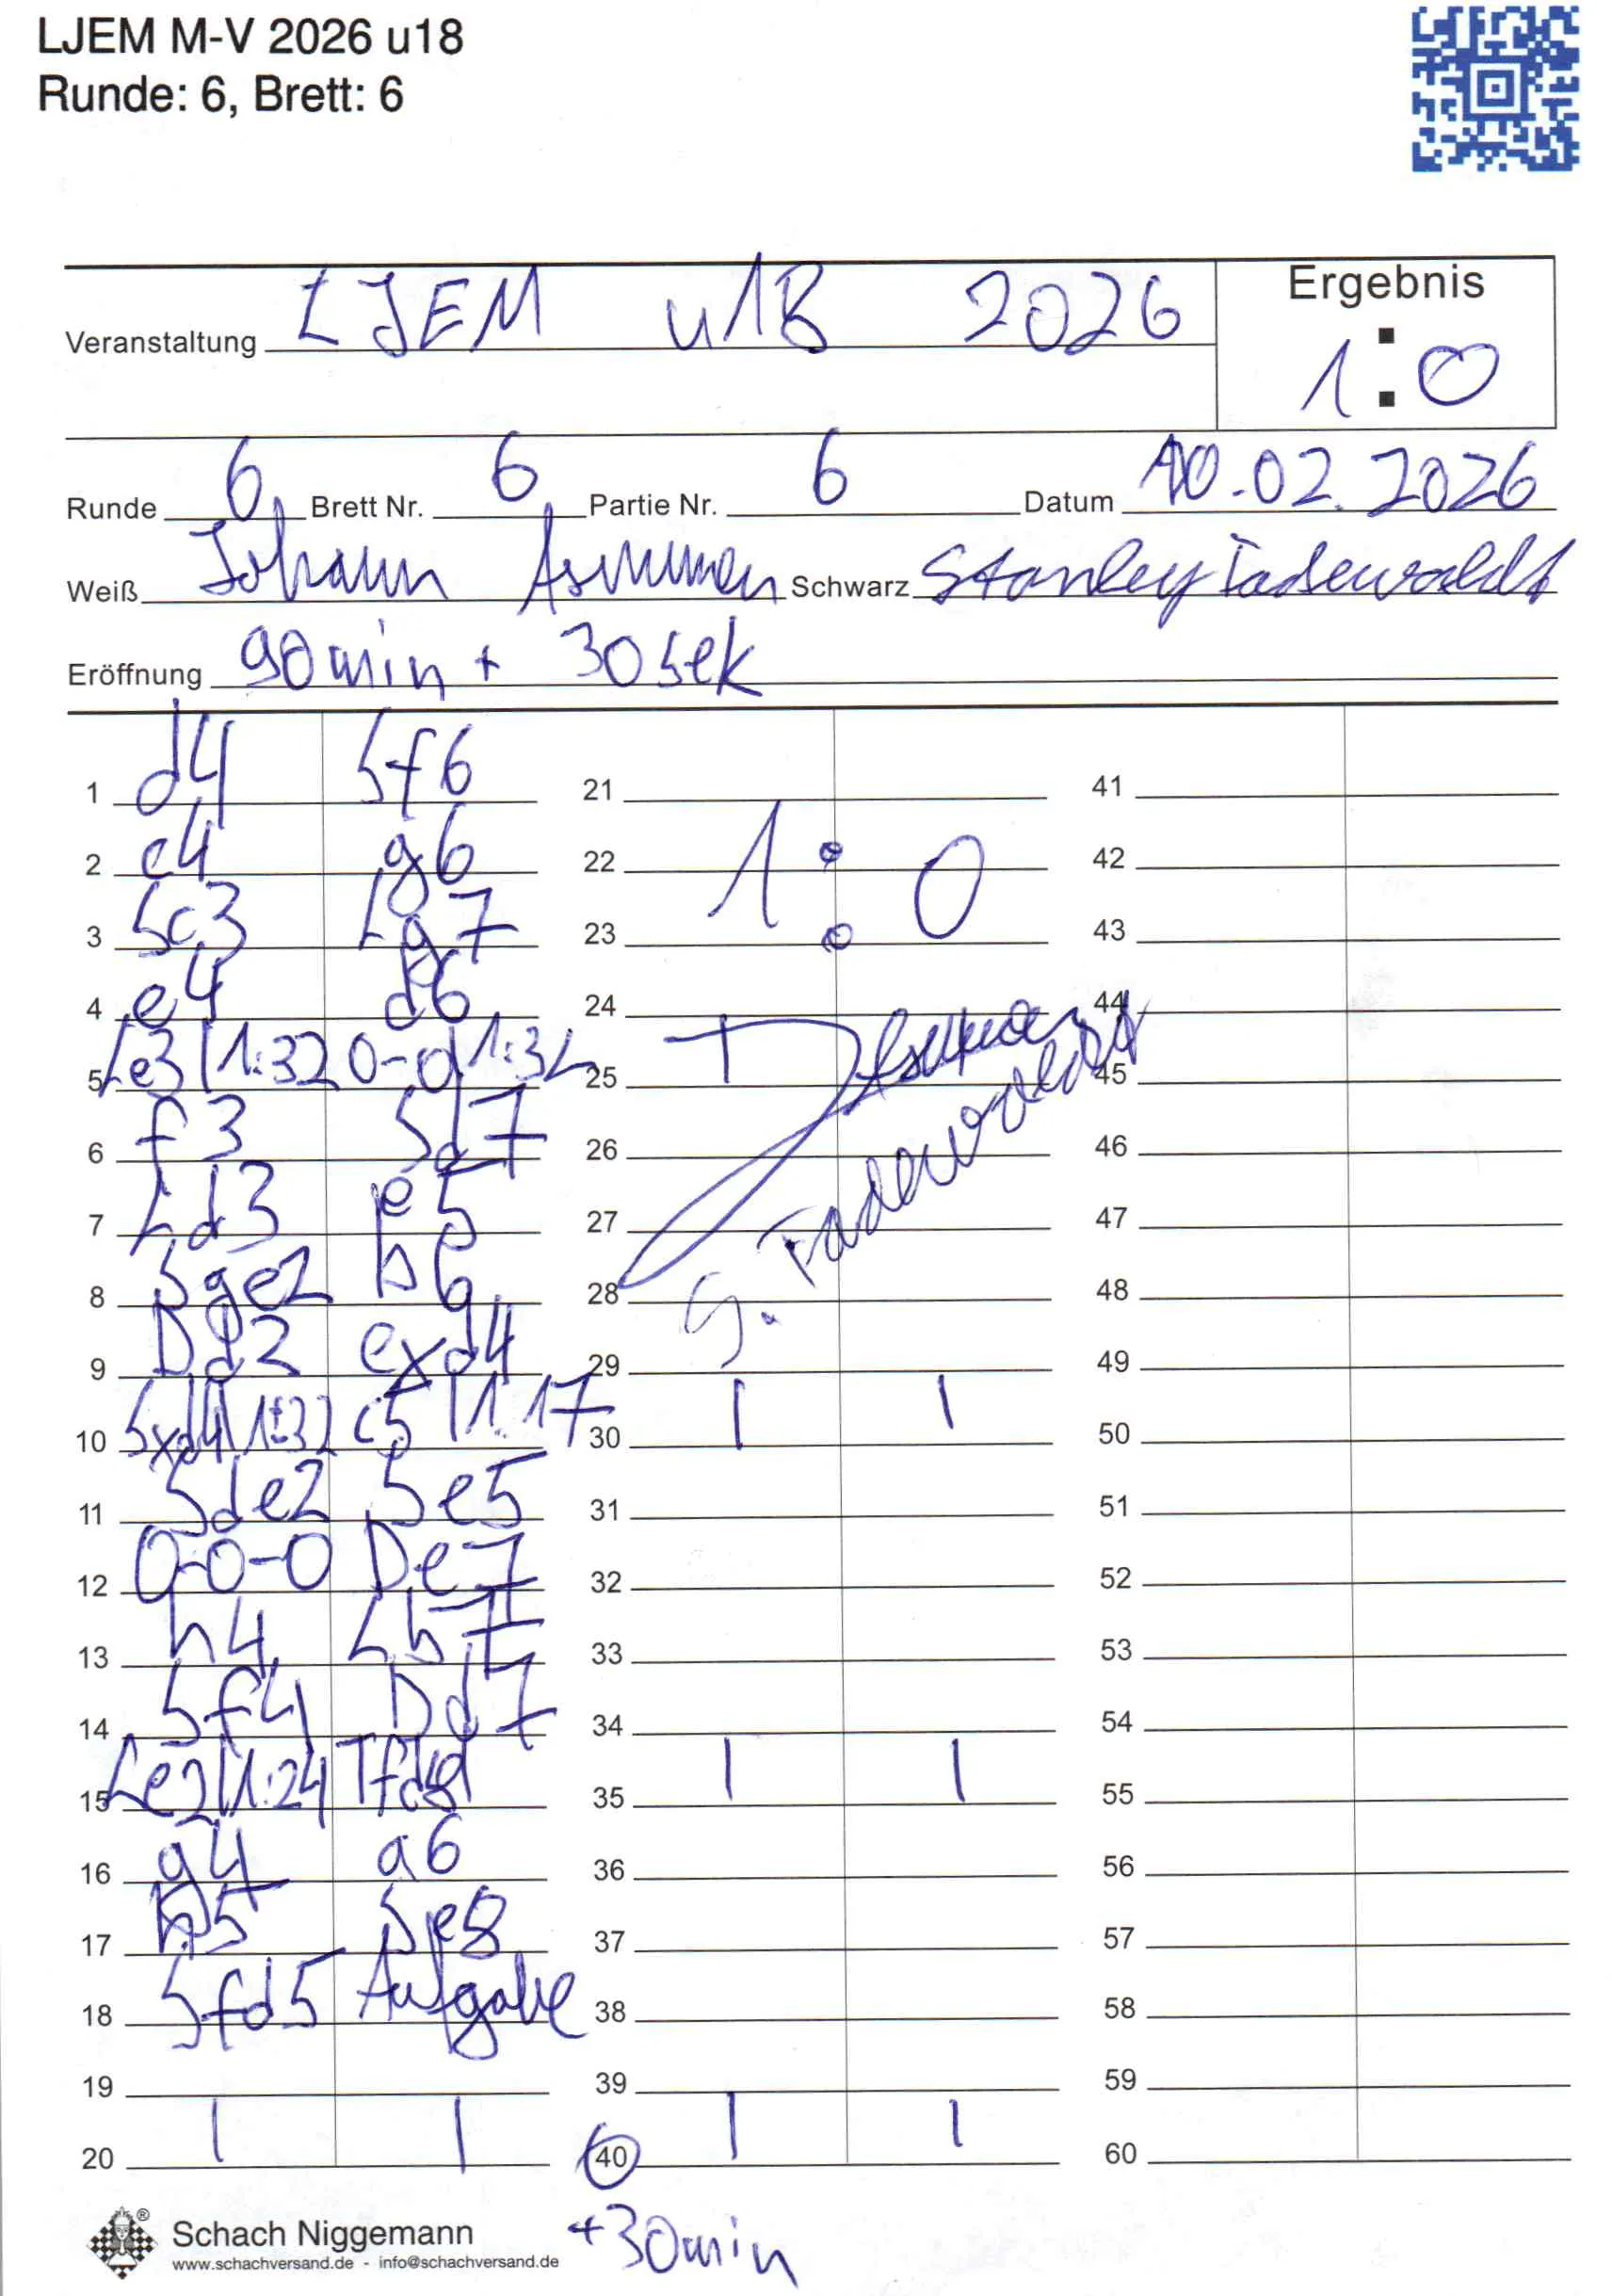 LJEM M-V 2026 u18
Runde: 6, Brett: 6
Veranstaltung LJEM u18 2026
Ergebnis
1:0
Runde 6 Brett Nr. 6 Partie Nr. 6 Datum 10.02.2026
Weiß Johann Asmman Schwarz Stanley Fadewaldt
Eröffnung 90min + 30sek
1 d4 Sf6
2 c4 g6
3 Sc3 Lg7
4 e4 d6
5 Le3 | 1:32 0-0 | 1:32
6 f3 Sd7
7 Ld3 e5
8 Sge2 b6
9 Dd2 exd4
10 Sxd4 | 1:32 c5 | 1:17
11 Sde2 Se5
12 0-0-0 De7
13 h4 Lb7
14 Sf4 Dd7
15 Le2 | 1:24 Tfd8
16 g4 a6
17 h5 Se8
18 Sfd5 Aufgabe
19
20
21
22 1:0
23
24
25
26
27
28 S. Fadewaldt
29
30
31
32
33
34
35
36
37
38
39
40
+30min
41
42
43
44
45
46
47
48
49
50
51
52
53
54
55
56
57
58
59
60
Schach Niggemann
www.schachversand.de - info@schachversand.de